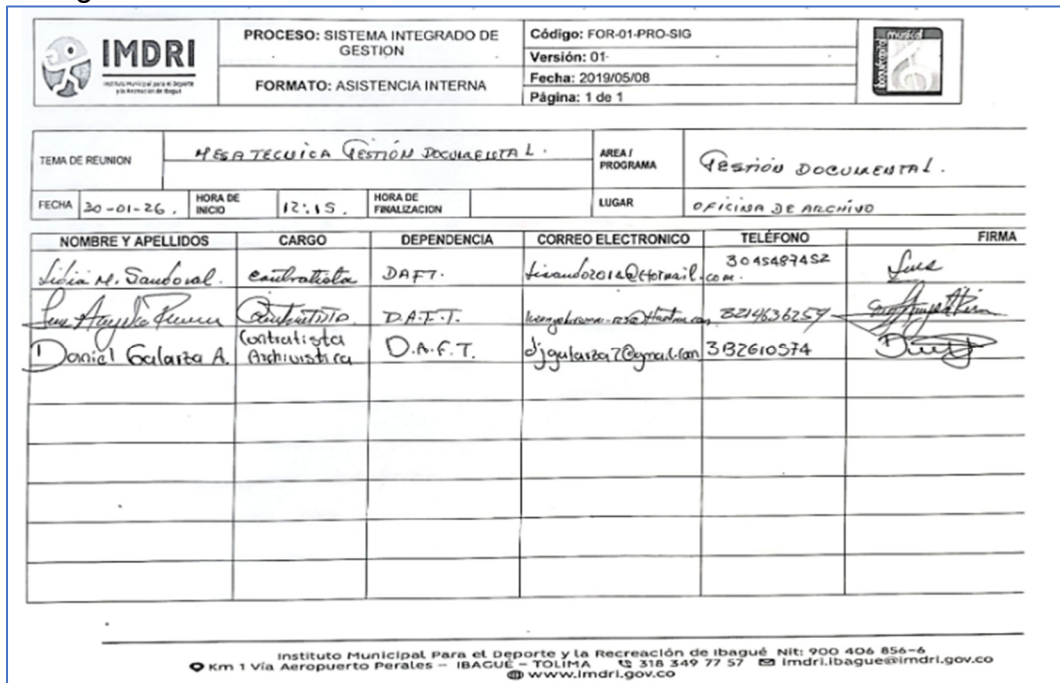 IMDRI
Instituto Municipal para el Deporte
y la Recreación de Ibagué
PROCESO: SISTEMA INTEGRADO DE
GESTION
FORMATO: ASISTENCIA INTERNA
Código: FOR-01-PRO-SIG
Versión: 01
Fecha: 2019/05/08
Página: 1 de 1
musical
TEMA DE REUNION
MESA TECNICA GESTIÓN DOCUMENTAL.
AREA /
PROGRAMA
GESTIÓN DOCUMENTAL.
FECHA 30-01-26. HORA DE INICIO 12:15. HORA DE FINALIZACION LUGAR OFICINA DE ARCHIVO
NOMBRE Y APELLIDOS CARGO DEPENDENCIA CORREO ELECTRONICO TELÉFONO FIRMA
Lidia M. Sandoval. contratista DAFT. 3045487452
Contratista D.A.F.T. 3214636259
Daniel Galarza A. Contratista Archivistica D.A.F.T. djgalarza7@gmail.com 3132610574
Instituto Municipal Para el Deporte y la Recreación de Ibagué Nit: 900 406 856-6
Km 1 Vía Aeropuerto Perales – IBAGUÉ – TOLIMA 318 349 77 57 imdri.ibague@imdri.gov.co
www.imdri.gov.co